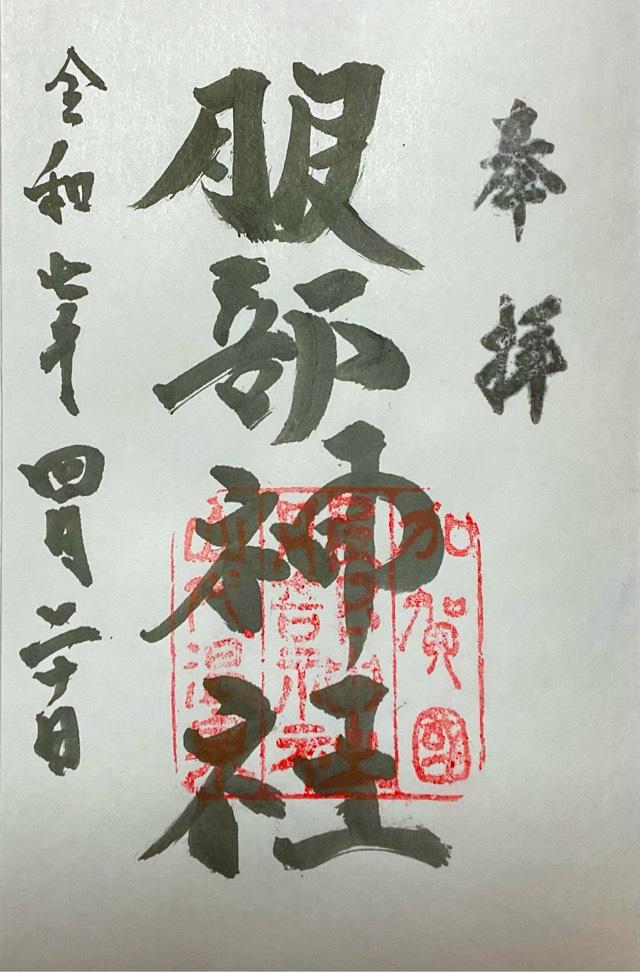 奉拝
服部神社
加賀國
服部神社
山代温泉
令和七年四月二十日